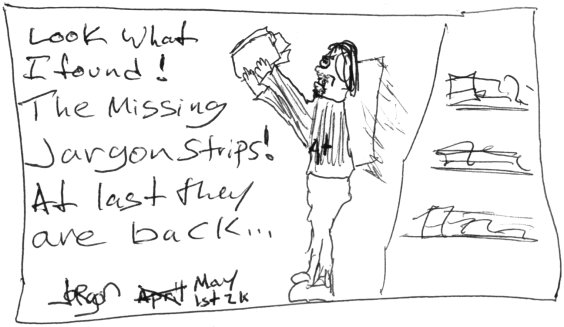 Look What
I found!
The Missing
Jargon Strips!
At last they
are back...
A+
Jargon April May
1st 2k